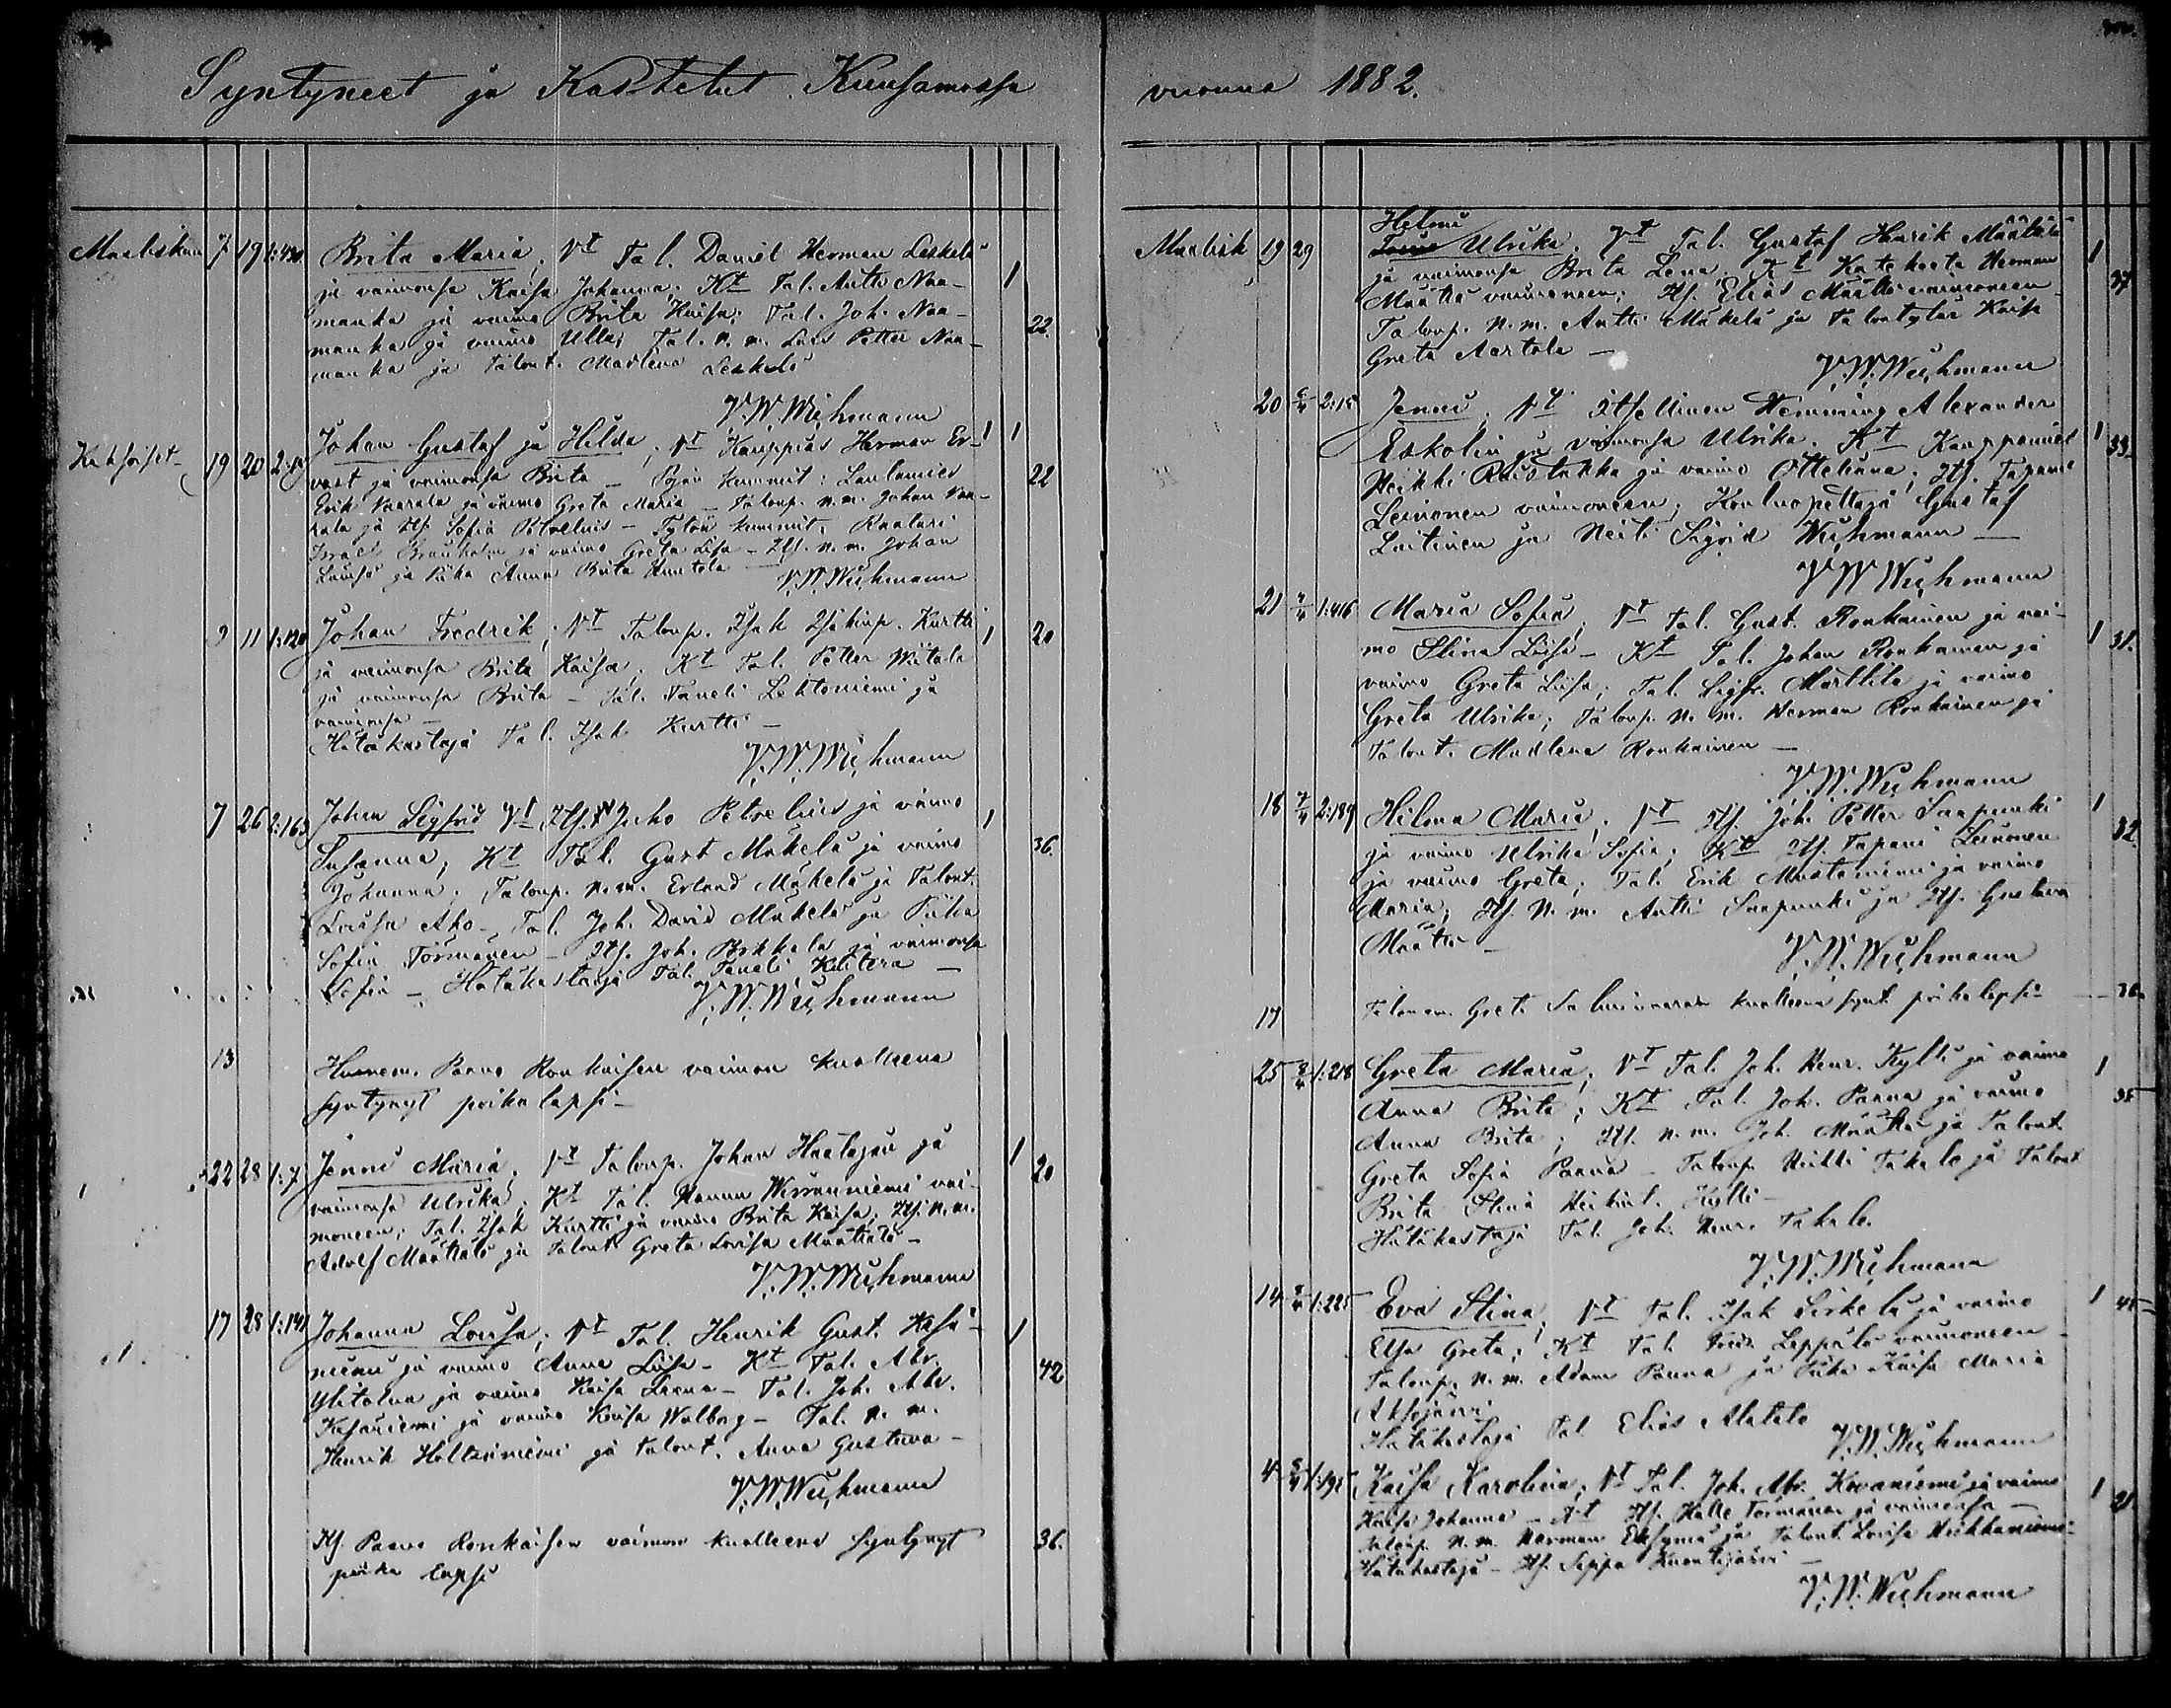 Syntyneet ja Kastetut Kuusamossa
Maaliskuu 7 19 1:430 Brita Maria; Vt Tal. Daniel Herman Leskelä
ja vaimonsa Kaisa Johanna; Kt Tal. Antti Naa- 1
manka ja vaimo Brita Kaisa; Tal. Joh. Naa-
manka ja vaimo Ulla; Tal. n. m. Lars Petter Naa- 22.
manka ja Talont. Madlena Leskelä
V. W. Wichmann
Kaksoiset 19 20 Johan Gustaf ja Hilda; Vt Kauppias Herman Er- 1 1
vast ja vaimonsa Brita – Pojan kummit: Lautamies 22
Erik Vaarala ja vaimo Greta Maria – Taloup. n. m. Johan Vaa-
rala ja Its. Sofia – Tytön kummit. Räätäri
Israel ja vaimo Greta Lisa – Its. n. m. Johan
ja Piika Anna Brita
V. W. Wichmann
9 11 1:120 Johan Fredrik; Vt Taloup. Isak Isakinp. Kurtti 1 20
ja vaimonsa Brita Kaisa; Kt Tal. Petter Witala
ja vaimonsa Brita – Tal. Taneli Lehtoniemi ja
vaimonsa –
Hätäkastaja Tal. Isak Kurtti –
V. W. Wichmann
7 26 2:163 Johan Sigfrid Vt Its. Juho Petrelius ja vaimo 1
Susanna; Kt Tal. Gust Mäkelä ja vaimo 36.
Johanna; Taloup. n. m. Erland Mäkelä ja Talont.
Lovisa Aho – Tal. Joh. David Mäkelä ja Piika
Sofia Törmänen – Its. Joh. Pekkala ja vaimonsa
Sofia – Hätäkastaja Tal. Taneli
V. W. Wichmann
13 Paavo Ronkaisen vaimon kuolleena
syntynyt poikalapsi –
22 28 1:7 Jenni Maria; Vt Taloup. Johan Haataja ja 1 20
vaimonsa Ulrika; Kt Tal. Wirranniemi vai-
moneen; Tal. Isak Kurtti ja vaimo Brita Kaisa; Its. n. m.
Adolf Määttälä ja Talont Greta Lovisa Määttälä –
V. W. Wichmann
17 28 1:141 Johanna Lovisa; Vt Tal. Henrik Gust. Kesä- 1
niemi ja vaimo Anna Liisa – Kt Tal. Abr. 42
Ylitalva ja vaimo Kaisa Leena – Tal. Joh. Abr.
Kesäniemi ja vaimo Kaisa Walborg – Tal. n. m.
Henrik ja Talont. Anna Gustava –
V. W. Wichmann
Its. Paavo Ronkaisen vaimon kuolleena syntynyt 36.
poika lapsi
vuonna 1882.
Maalisk 19 29 Helmi
Ulrika. Vt Tal. Gustaf Henrik Määttä 1
ja vaimonsa Brita Lena. Kt Katekeeta Herman 37
Määttä vaimoneen; Its. Elias Määttä vaimoneen
Taloup. n. m. Antti Mäkelä ja Talontytär Kaisa
Greta Aartola –
V. W. Wichmann
20 6/4 2:15 Jenni; Vt Itsellinen Hemming Alexander
Eskolin ja vaimonsa Ulrika. Kt Kauppamies 1 33
Heikki ja vaimo Otteliana; Its. Tapani
Leinonen vaimoneen; Koulunopettaja Gustaf
Laitinen ja Neiti Sigrid Wichmann –
V. W. Wichmann
21 1:416 Maria Sofia; Vt Tal. Gust. Ronkainen ja vai-
mo Stina Liisa – Kt Tal. Johan Ronkainen ja 1 31.
vaimo Greta Liisa; Tal. Sigfr. Marttila ja vaimo
Greta Ulrika; Taloup. n. m. Herman Ronkainen ja
Talont. Madlena Ronkainen –
V. W. Wichmann
18 7/4 2:189 Hilma Maria; Vt Its. Joh. Petter Saapunki 1
ja vaimo Ulrika Sofia; Kt Its. Tapani Leinonen 32.
ja vaimo Greta; Tal. Erik Mustaniemi ja vaimo
Maria; Its. n. m. Antti Saapunki ja Its. Gustava
Määttä –
V. W. Wichmann
17 Greta kuolleena synt. poikalapsi
25 8/4 1:218 Greta Maria; Vt Tal. Joh. Henr. Kylli ja vaimo 1
Anna Brita; Kt Tal. Joh. Paana ja vaimo 38
Anna Brita; Its. n. m. Joh. Määttä ja Talont.
Greta Sofia Paana – Taloup. Heikki Takalo ja Talont
Brita Stina Heikint. Kylli –
Hätäkastaja Tal. Joh. Henr. Takalo.
V. W. Wichmann
14 8/4 1:225 Eva Stina; Vt Tal. Isak Sirkelä ja vaimo 1
Elsa Greta; Kt Tal. Fredr. Leppälä vaimoneen –
Taloup. n. m. Adam Paana ja Piika Kaisa Maria
Hätäkastaja Tal Elias Alatalo
V. W. Wichmann
4 8/4 Kaisa Karolina; Vt Tal. Joh. Abr. ja vaimo 1
Kaisa Johanna – Kt Its. Kalle Törmänen ja vaimonsa –
Taloup. n. m. Herman ja Talont. Lovisa Heikkaniemi
Hätäkastaja – Its.
V. W. Wichmann